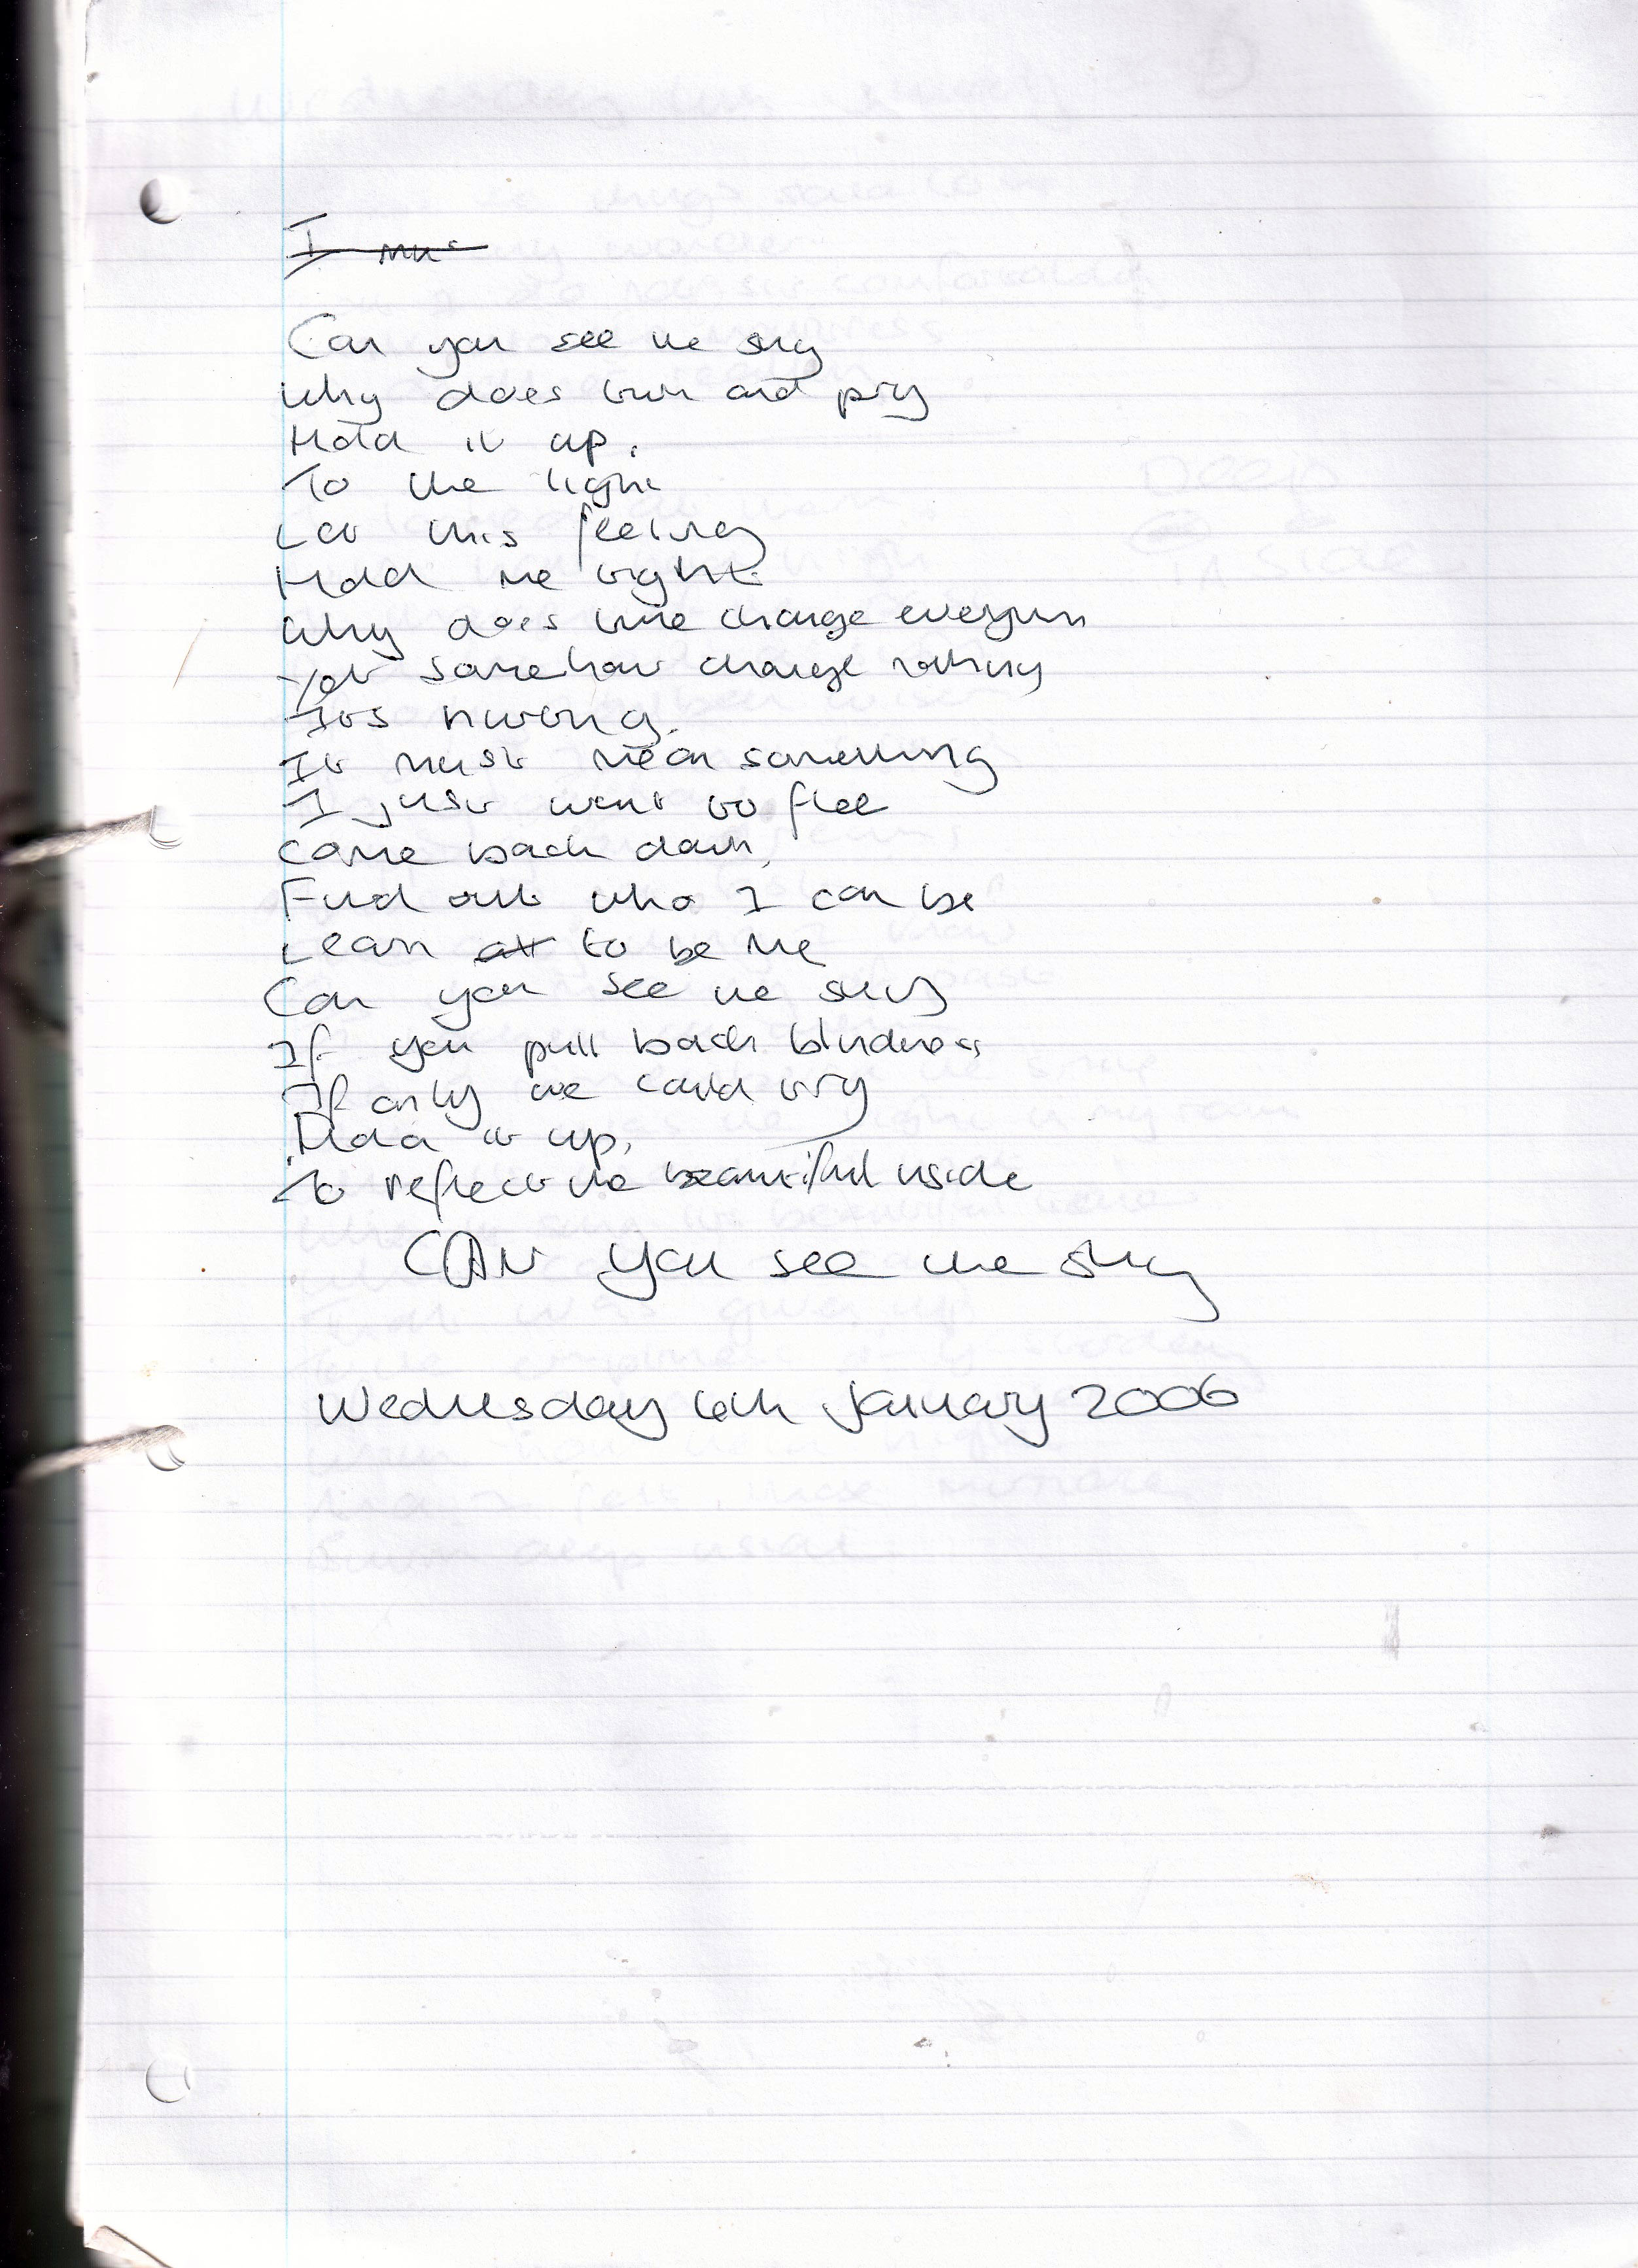 Can you see the sky
Why does turn and pry
Hold it up.
To the light
Let this feeling
Hold me tight.
Why does time change everyun
Yet somehow change nothing
Its hurting.
It must mean something
I just want to flee
Come back down,
Find out who I can be
Learn to be me
Can you see the sky
If you pull back blindness
If only we could try
Hold it up.
To reflect the beautiful inside
CAN you see the sky
Wednesday 6th January 2006